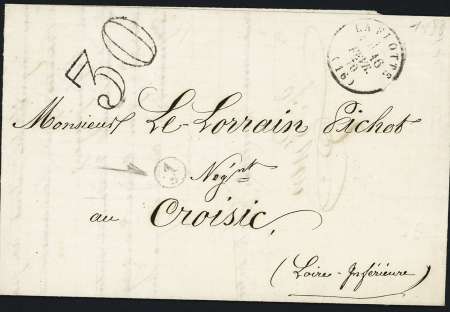 30
LA FLOTTE
16
FEVR.
70
(16)
Monsieur Le Lorrain Pichot
Nég.nt
au Croisic,
(Loire-Inférieure)